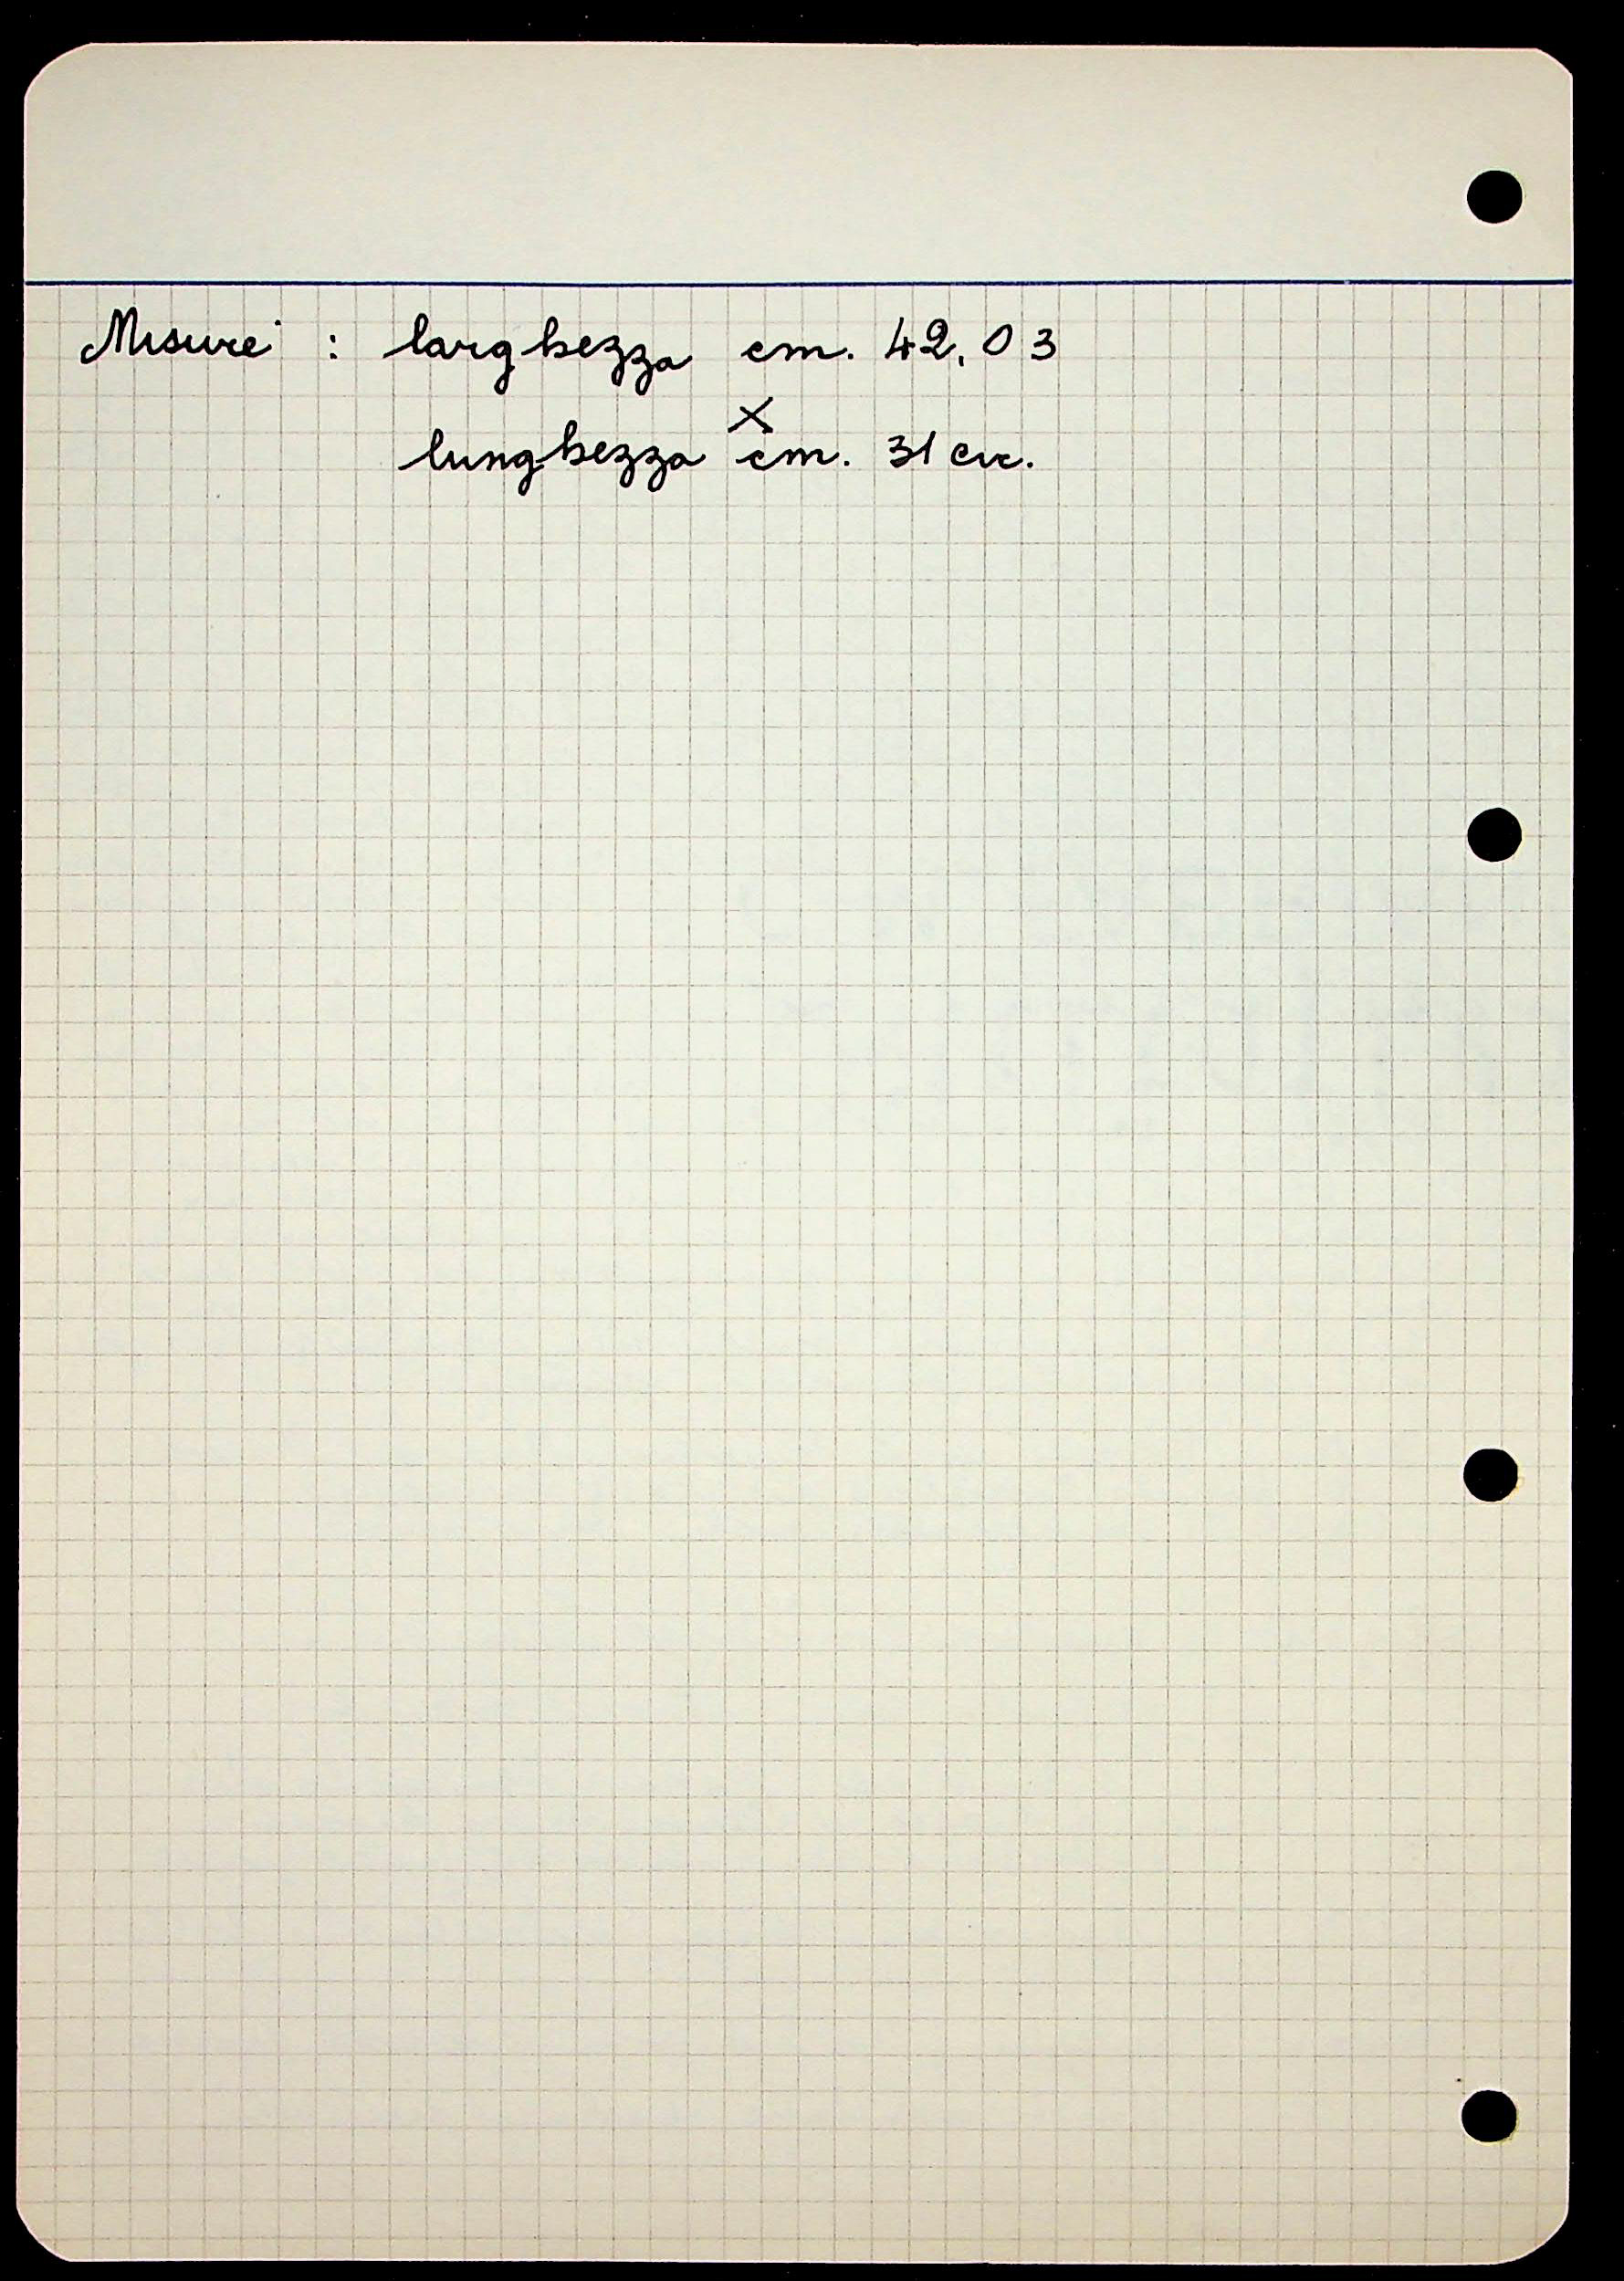 Misure : larghezza cm. 42,03
x
lunghezza cm. 31 circ.